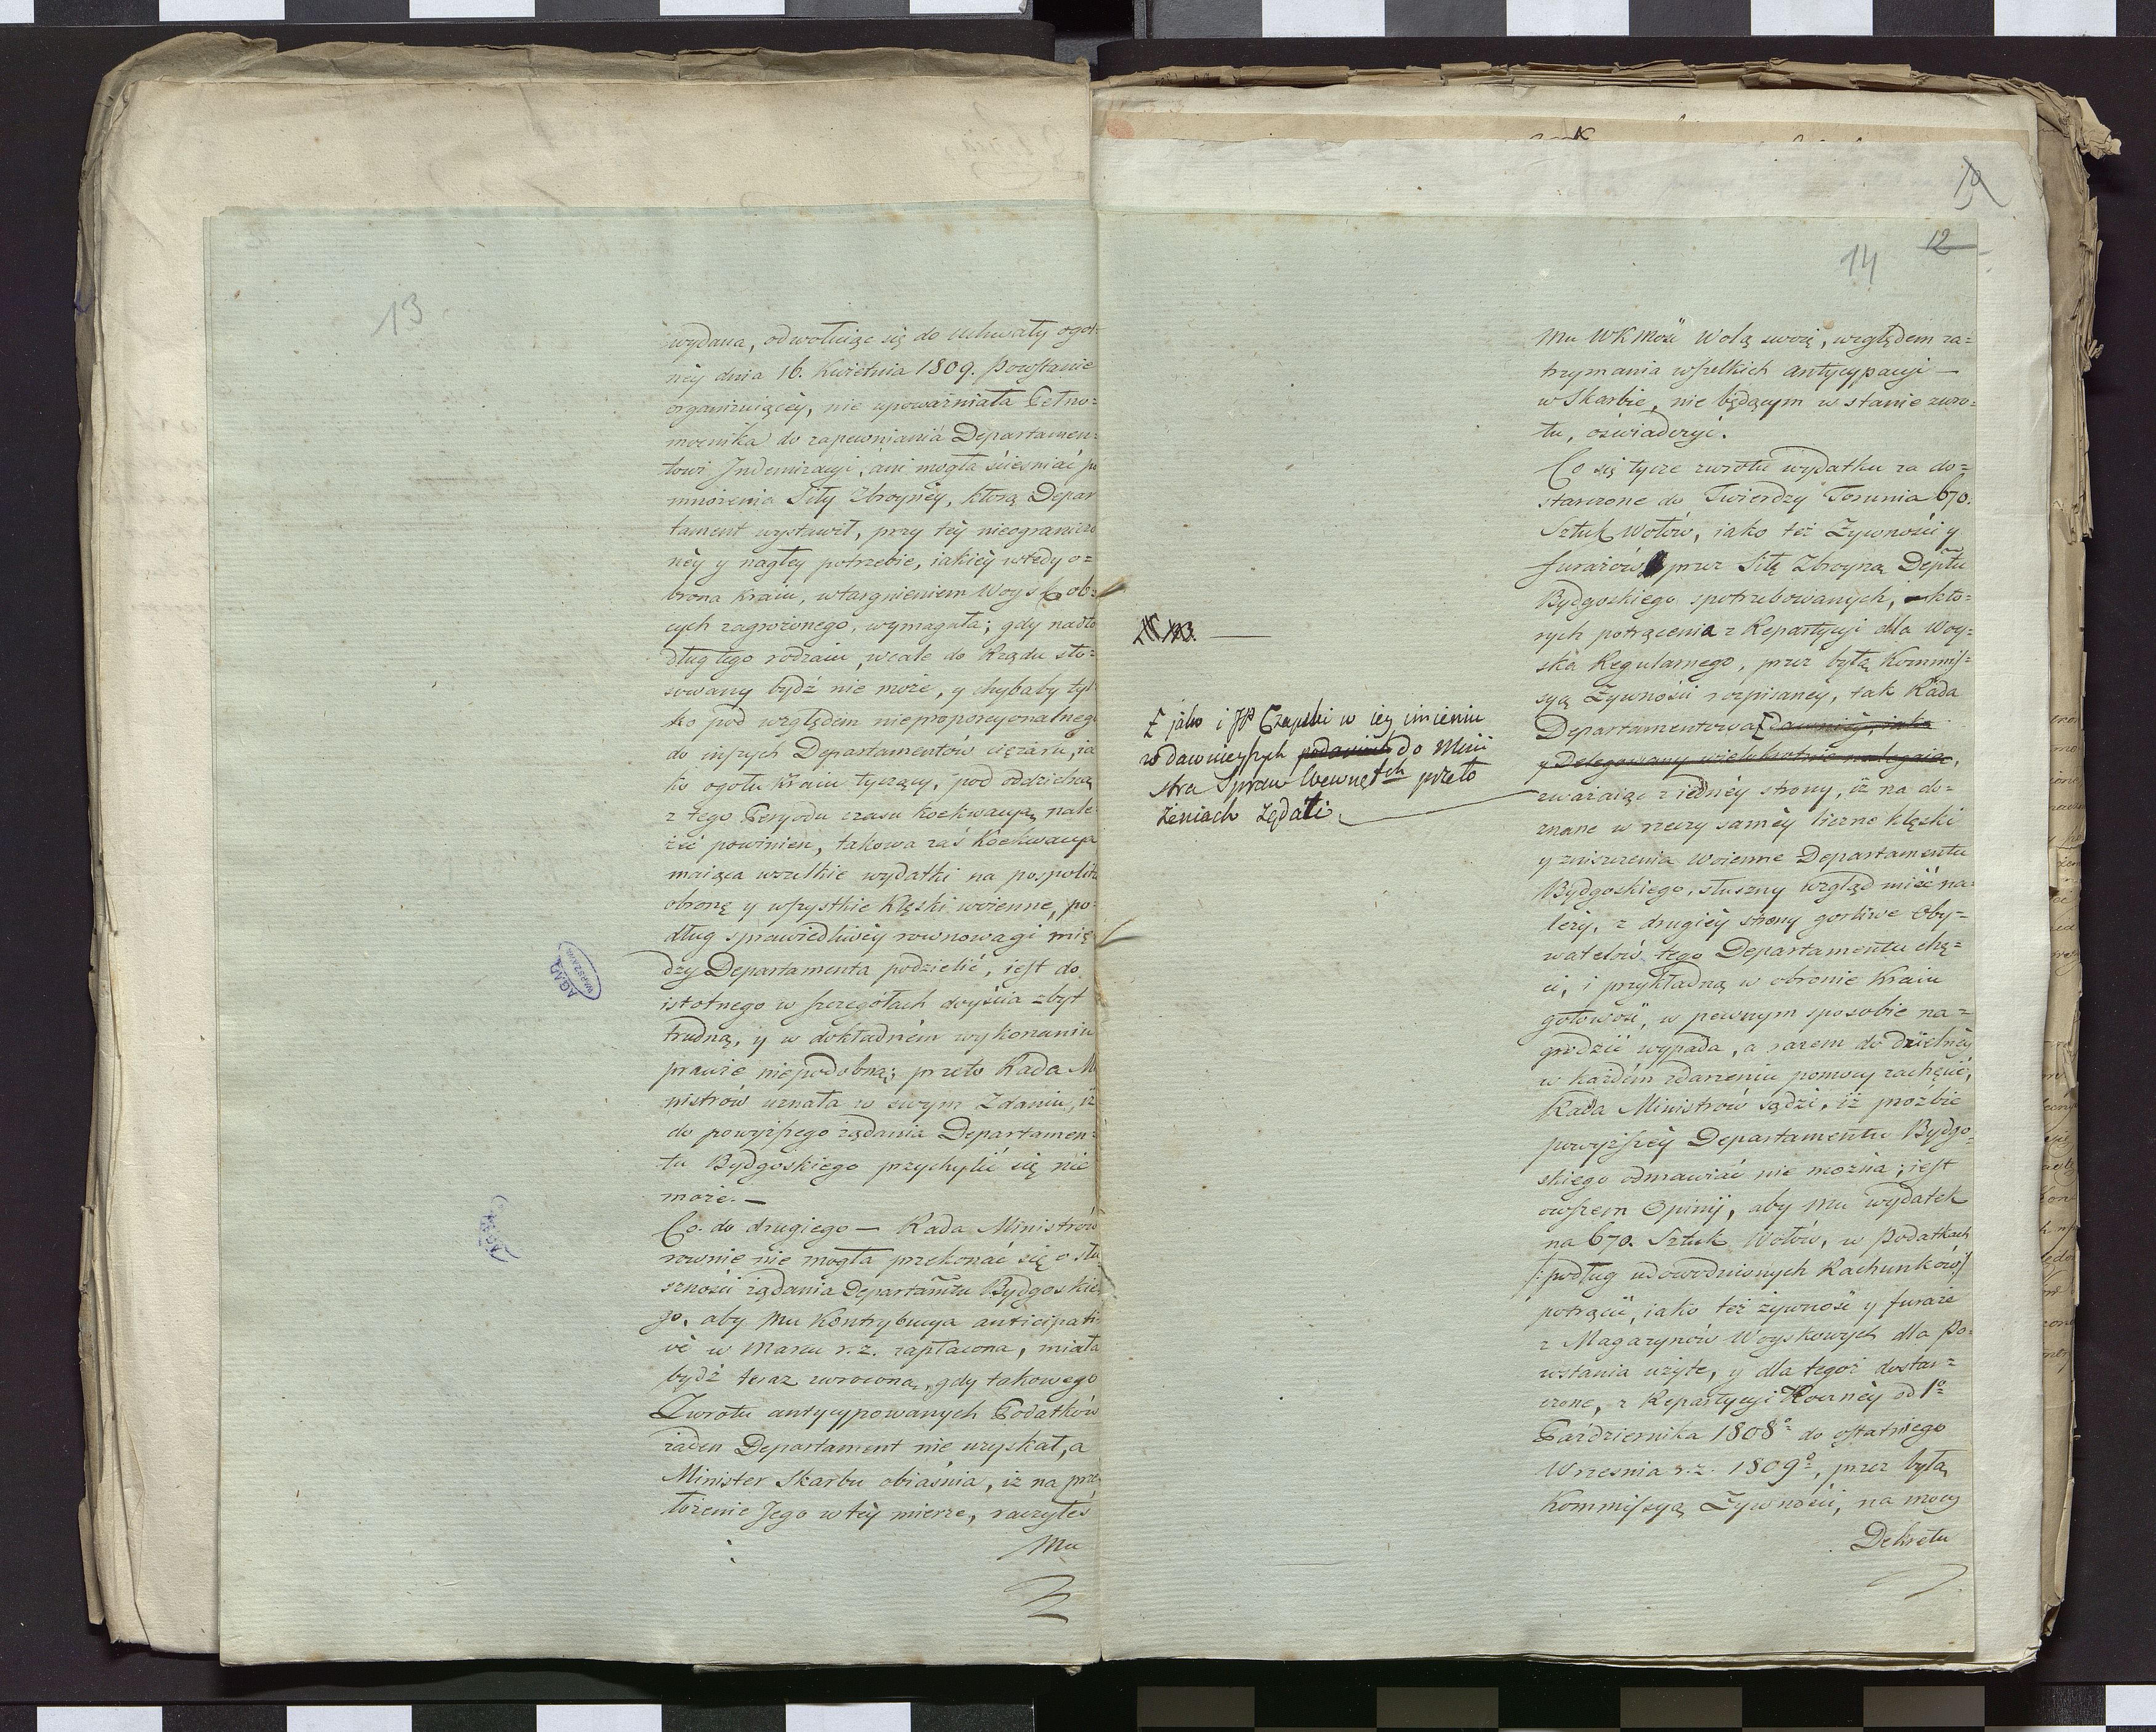 13
wydana, odwołuiąc się do Uchwały ogol=
ney dnia 16. Kwietnia 1809. Powstanie
organizuiącey, nie upoważniała Pełno=
mocnika do zapewniania Departamen=
towi Indemizacyi, ani mogła ścieśniać po
mnożenia Siły Zbroyney, którą Depar
tament wystawił, przy tey nieograniczo
ney y nagłey potrzebie, iakiey wtedy o=
brona Kraiu, wtargnieniem Woysk ob=
cych zagrożonego, wymagała; gdy nadto
dług tego rodzaiu, wcale do Rządu sto=
sowany bydź nie może, y chybaby tyl
ko pod względem nieproporcyonalnego
do inszych Departamentów ciężaru, ia
ko ogołu Kraiu tyczący, pod oddzielną
z tego Peryodu czasu Koekwacyą nale
żeć powinien, takowa zaś Koekwacya
maiąca wszelkie wydatki na pospolitą
obronę y wszystkie klęski woienne, po=
dług sprawiedliwey rownowagi mię
dzy Departamenta podzielić, iest do
istotnego w szczegółach doyścia zbyt
trudną, y w dokładném wykonaniu
prawie niepodobną; przeto Rada Mi
nistrów uznała w swym Zdaniu, iż
do powyższego żądania Departamen=
tu Bydgoskiego przychylić się nie
może. —
Co do drugiego — Rada Ministrów
rownie nie mogła przekonać się o słu
szności żądania Departamtu Bydgoskie
go, aby mu Kontrybucya anticipati
vè w Marcu r. z. zapłacona, miała
bydź teraz zwrocona, gdy takowego
Zwrotu antycypowanych Podatków
żaden Departament nie uzyskał, a
Minister Skarbu obiaśnia, iż na prze
łożenie Jego w tey mierze, raczyłeś
Mu
AGAD
WARSZAWA
12
14
Mu WKMość Wolą swoię, względem za=
trzymania wszelkich antycypacyi —
w Skarbie, nie będącym w stanie zwro=
tu, oświadczyć.
Co się tycze zwrotu wydatku za do=
starczone do Twierdzy Torunia 670.
Sztuk Wołów, iako też Żywności y
furażów przez Siłę Zbroyną Deptu
Bydgoskiego spotrzebowanych, kto=
rych potrącenia z Repartycyi dla Woy=
ska Regularnego, przez byłą Kommis=
syą Żywności rozpisaney, tak Rada
Departamentowa dawniey, iako
y Delegowany wielokrotnie nalegaią,
zważaiąc z iedney strony, iż na do=
znane w rzeczy samey liczne klęski
y zniszczenia woienne Departamentu
Bydgoskiego, słuszny wzgląd mieć na=
leży, z drugiey strony gorliwe Oby=
watelów tego Departamentu chę=
ci, i przykładną w obronie Kraiu
gotowość, w pewnym sposobie na=
grodzić wypada, a razem do dzielney
w każdém zdarzeniu pomocy zachęcić,
Rada Ministrów sądzi, iż proźbie
powyższey Departamentu Bydgo=
skiego odmawiać nie można; iest
owszem Opinij, aby mu wydatek
na 670. Sztuk Wołów, w Podatkach
/: podług udowodnionych Rachunków :/
potrącić, iako też żywność y furaże
z Magazynów Woyskowych dla Po=
wstania użyte, y dla tegoż dostar=
czone, z Repartycyi Roczney od 1o
Października 1808o do ostatniego
Września r. z. 1809o, przez byłą
Kommissyą Żywności, na mocy
Dekretu
jako i JP Czapski w iey imieniu
w dawnieyszych podaniach do Mini
stra Spraw Wewnętch przeło
żeniach żądali